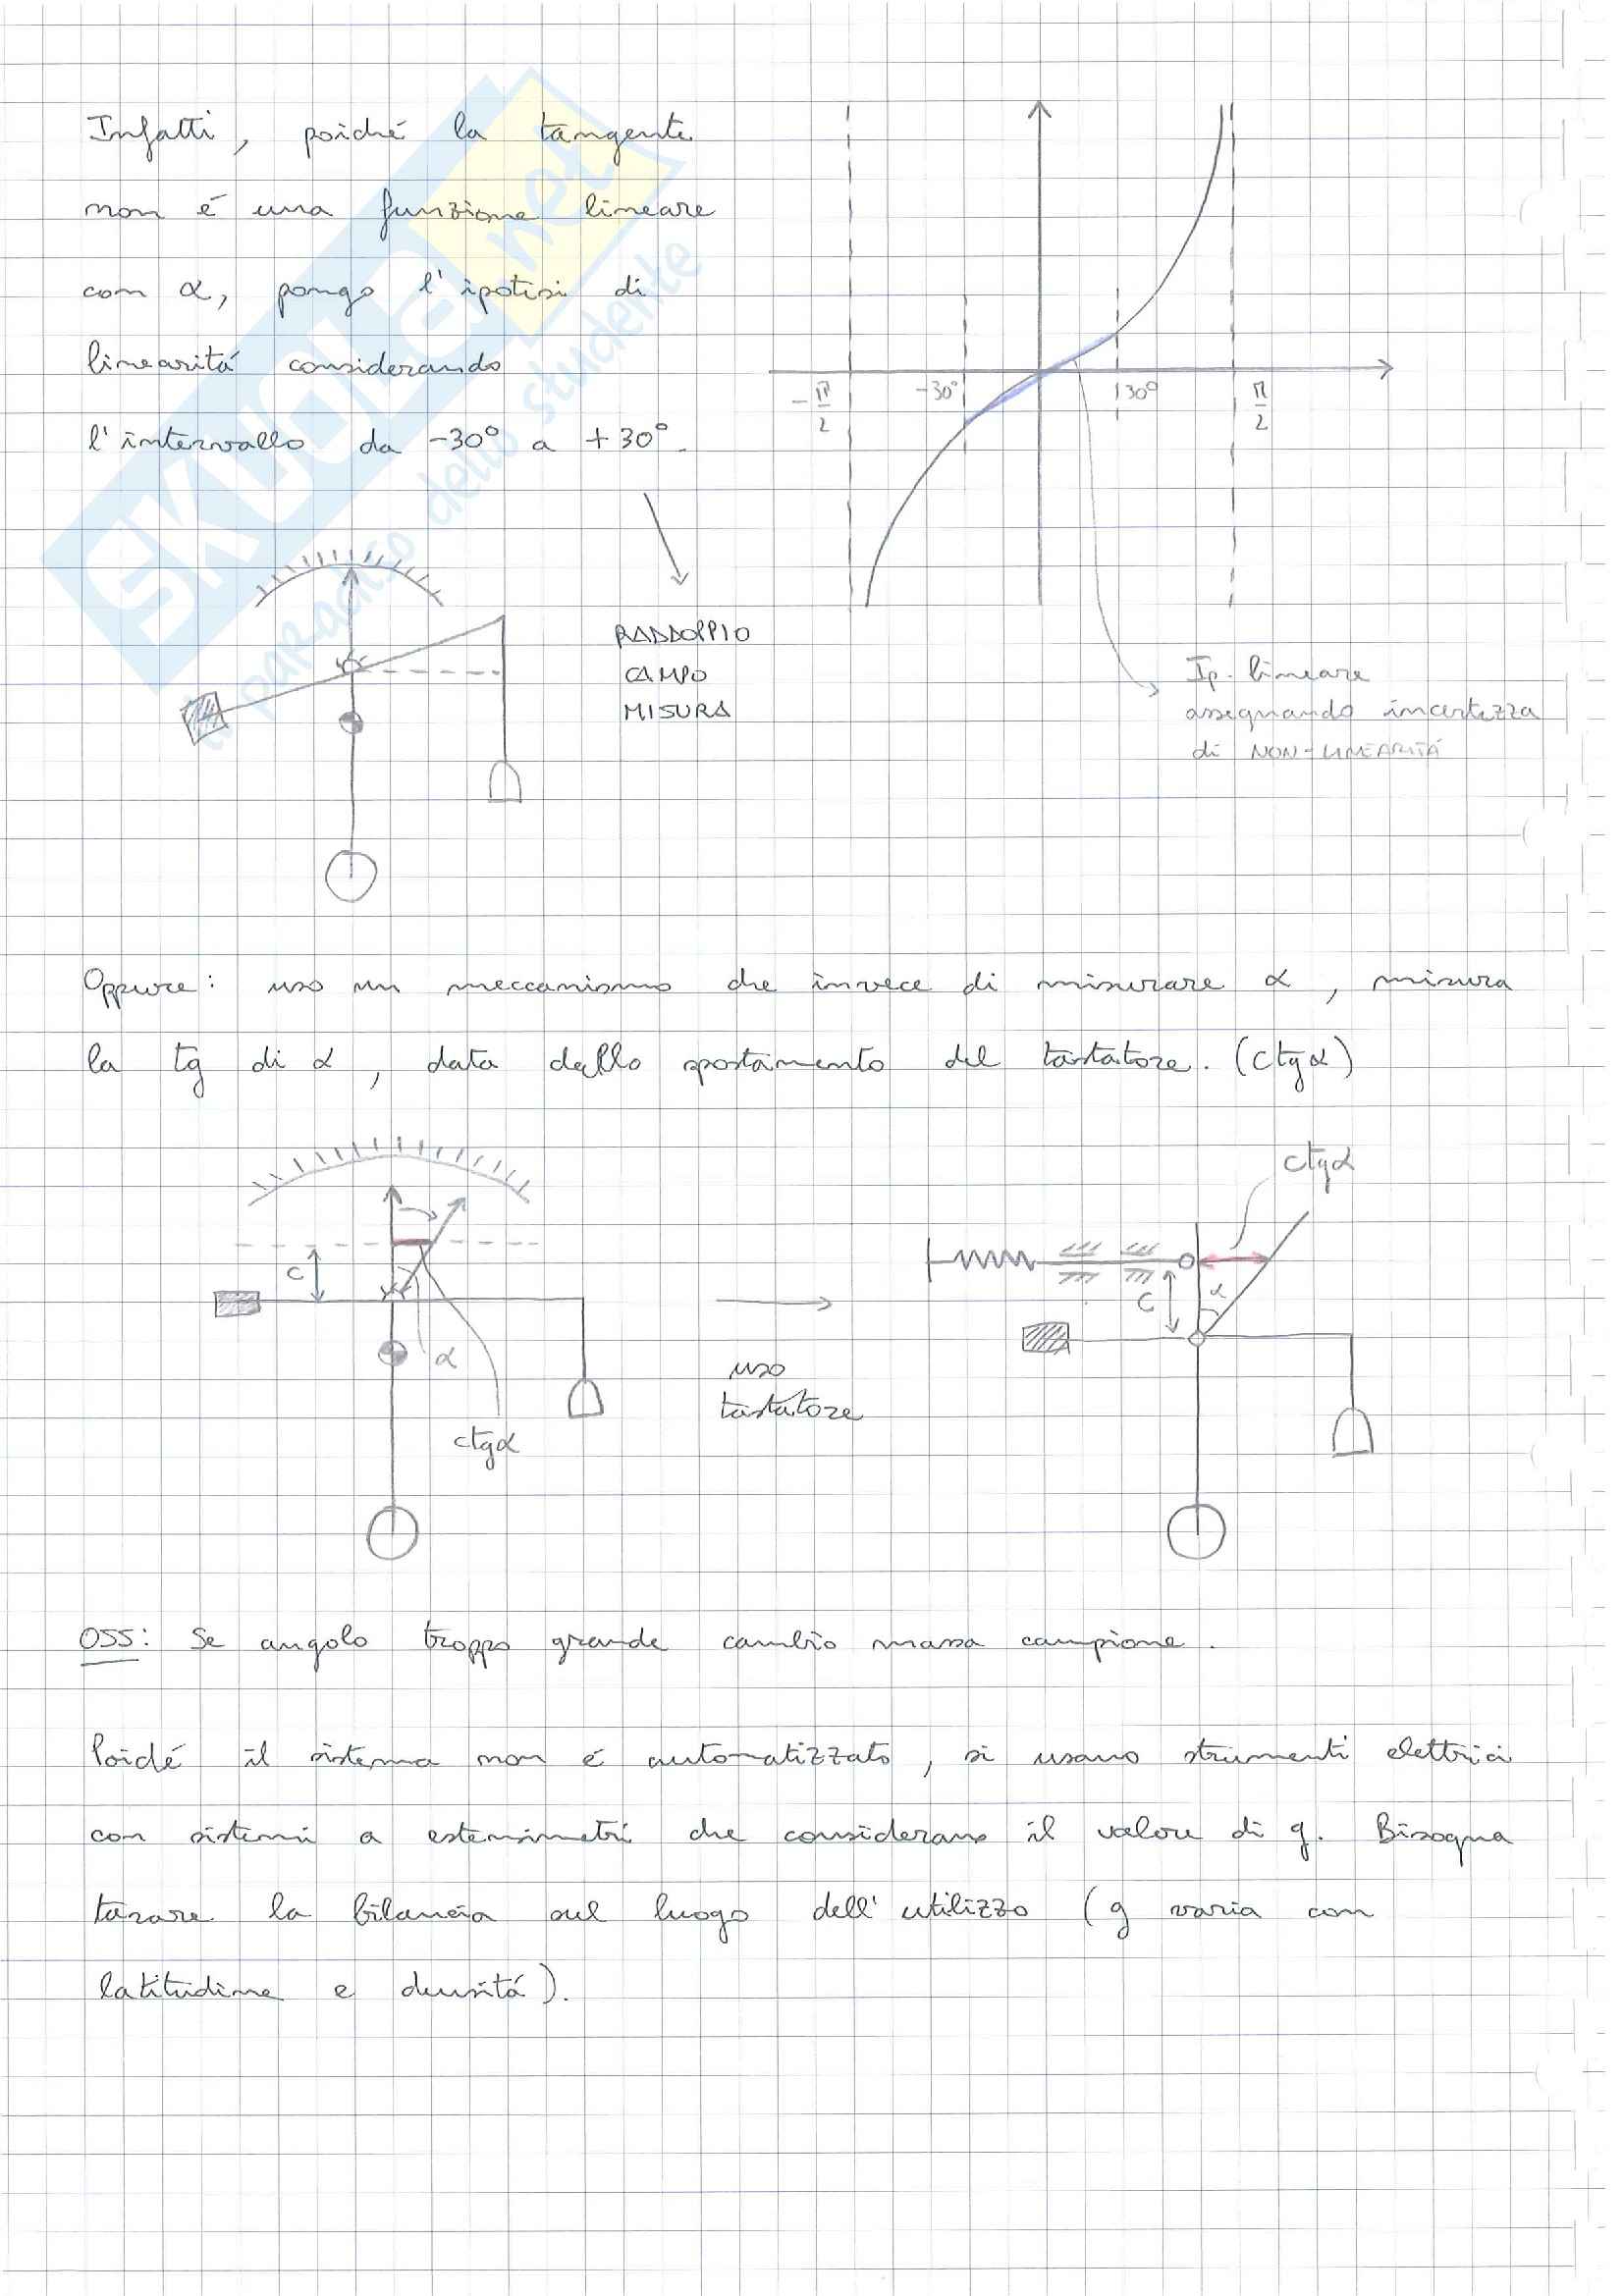 Infatti, poiché la tangente
non é una funzione lineare
con α, pongo l'ipotesi di
linearitá considerando
l'intervallo da -30° a +30°.
-π/2
-30°
30°
π/2
RADDOPPIO
CAMPO
MISURA
Ip. lineare
assegnando incertezza
di NON-LINEARITÁ
Oppure: uso un meccanismo che invece di misurare α, misura
la tg di α, data dallo spostamento del tastatore. (ctgα)
c
α
ctgα
uso
tastatore
ctgα
c
α
OSS: Se angolo troppo grande cambio massa campione.
Poiché il sistema non é automatizzato, si usano strumenti elettrici
con sistemi a estensimetri che considerano il valore di g. Bisogna
tarare la bilancia sul luogo dell'utilizzo (g varia con
latitudine e densitá).
SKUOLA.net
il paradiso dello studente